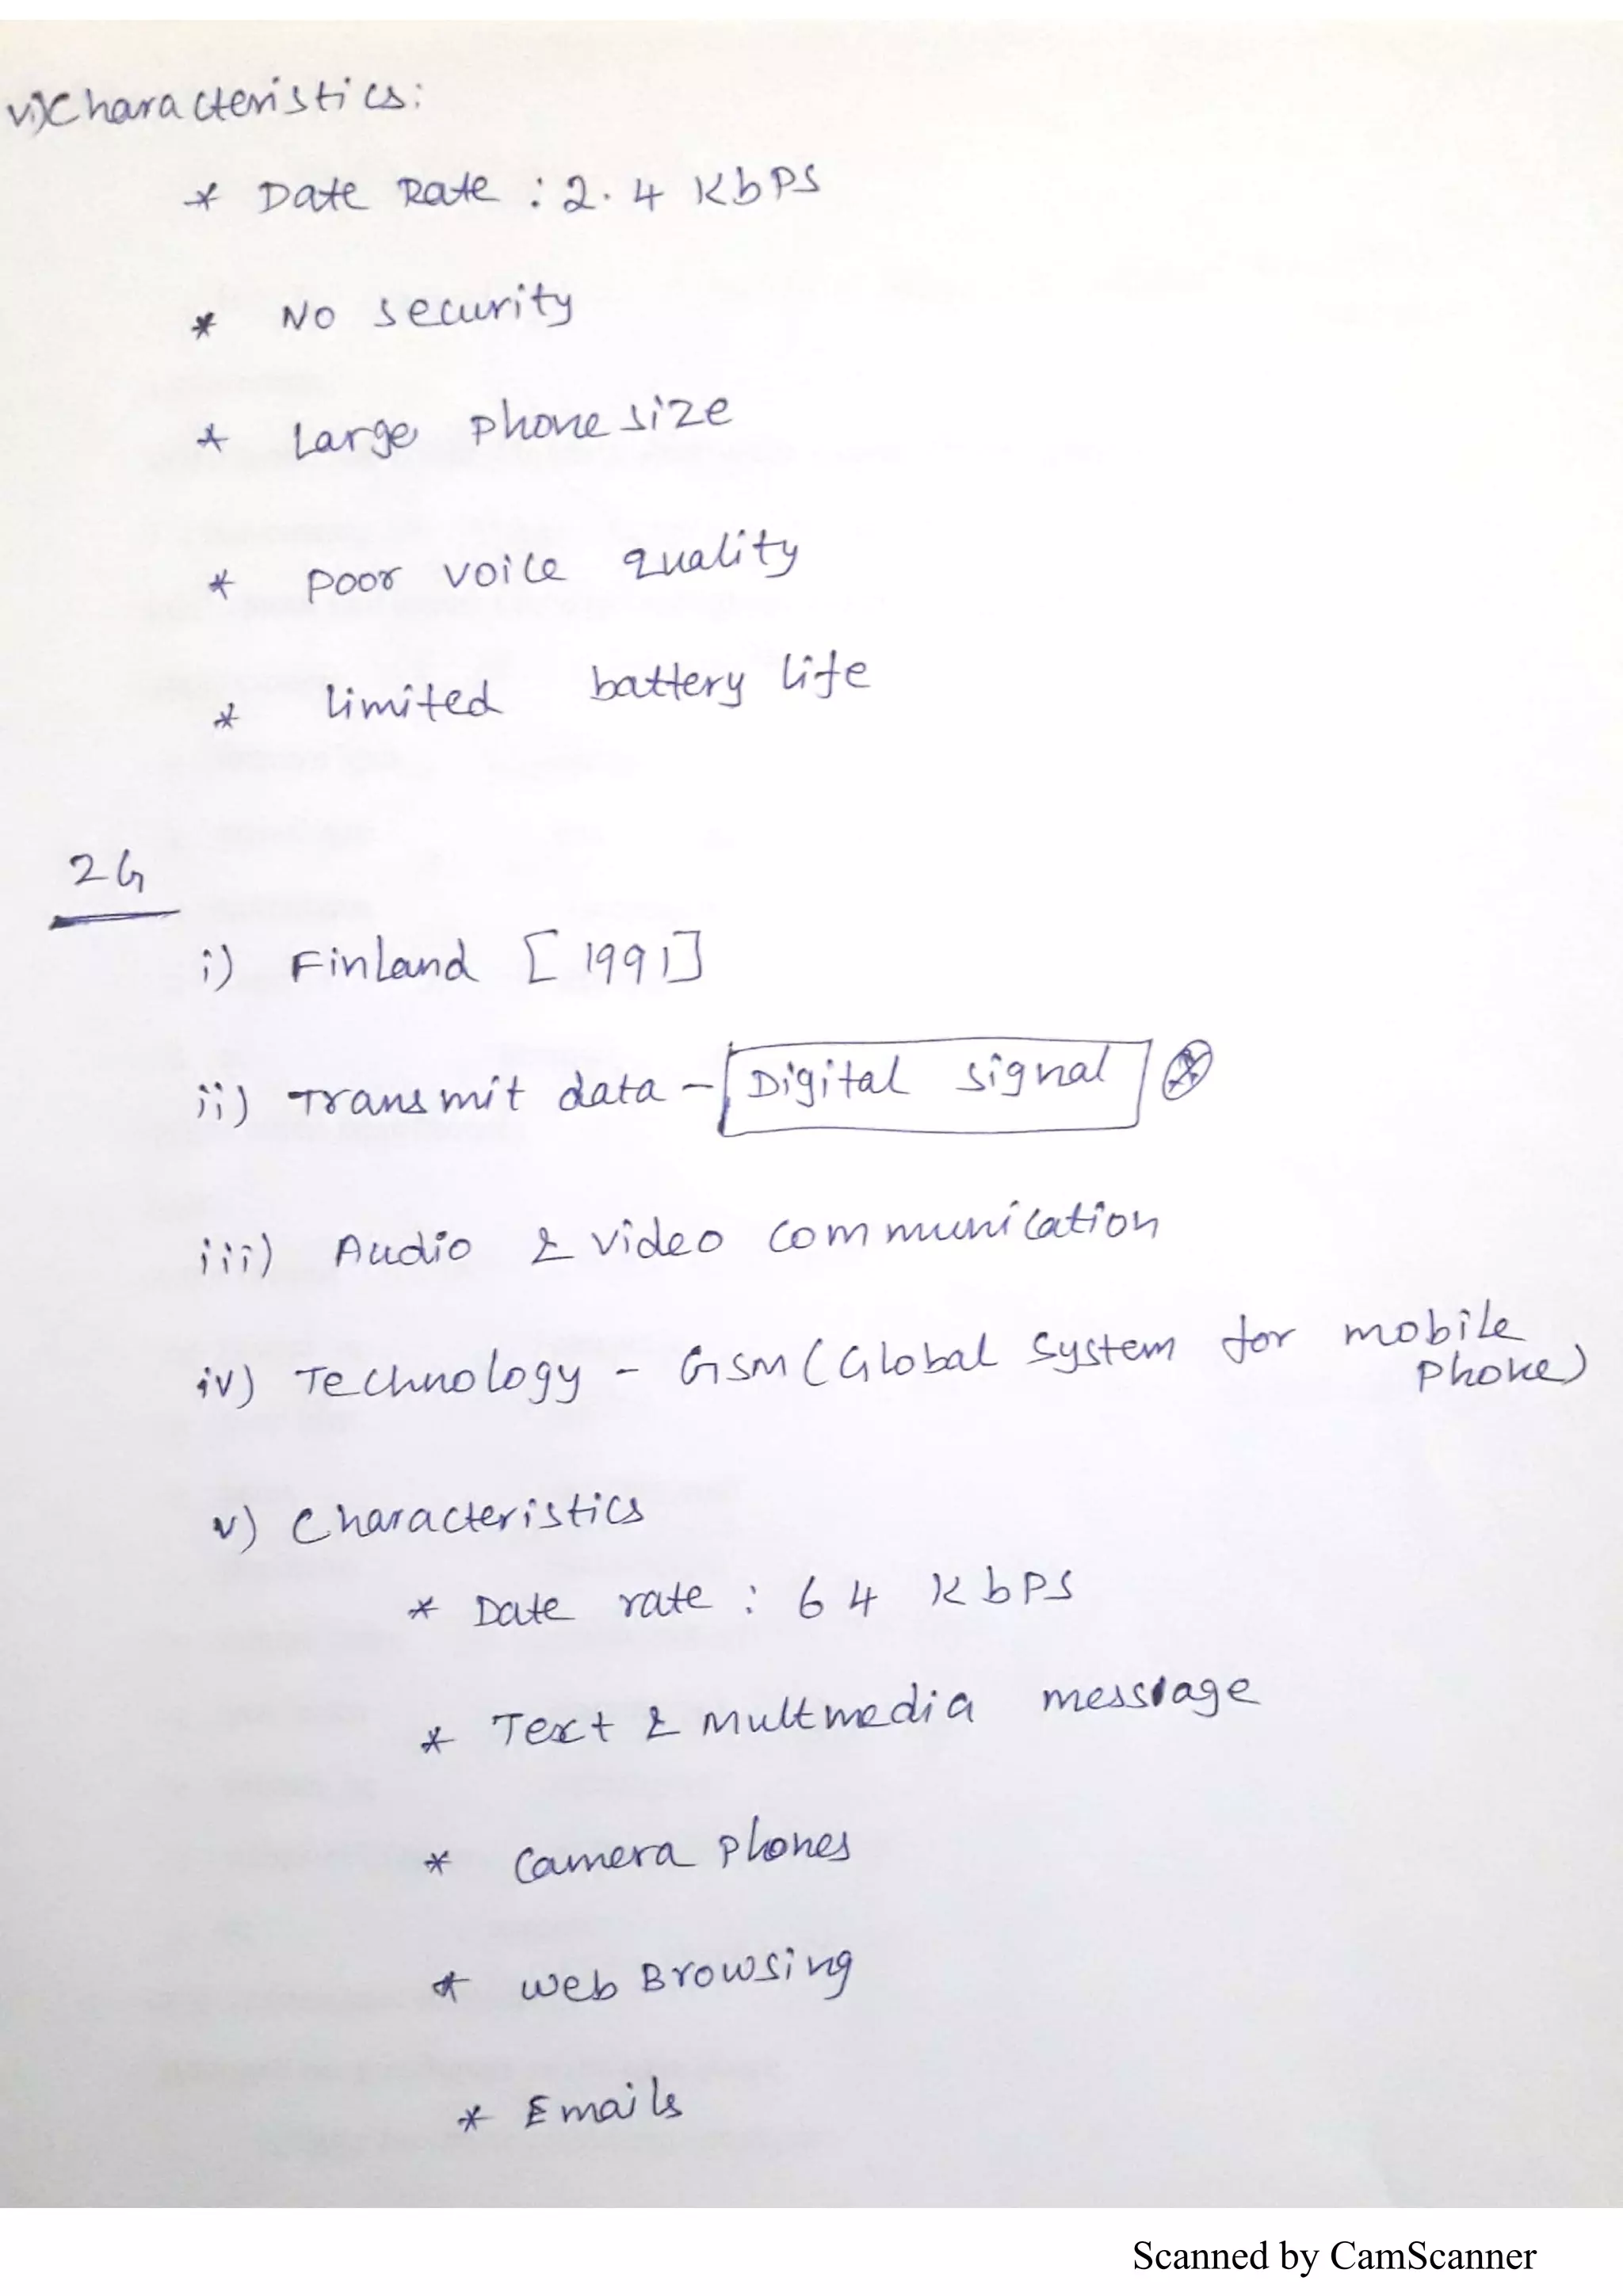 vi) Characteristics:
* Date Rate : 2.4 Kbps
* No security
* Large phone size
* poor voice quality
* limited battery life
2G
i) Finland [1991]
ii) Transmit data - Digital signal
iii) Audio & video communication
iv) Technology - GSM (Global system for mobile
phone)
v) Characteristics
* Date rate : 64 Kbps
* Text & Multmedia message
* Camera phones
* Web Browsing
* Emails
Scanned by CamScanner